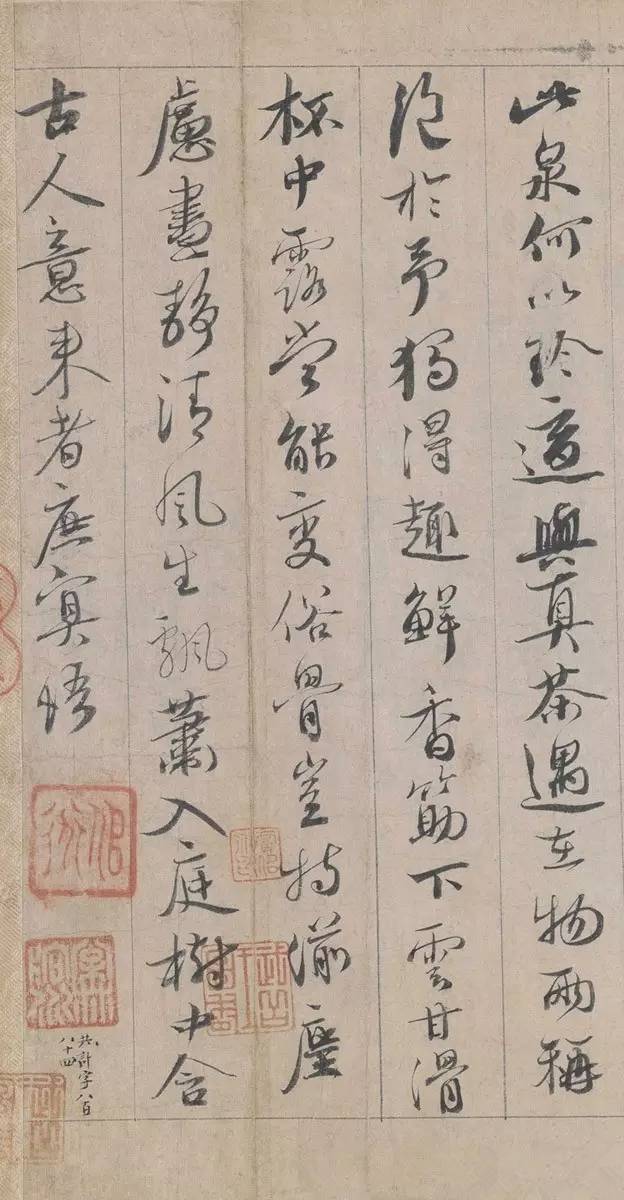 此泉何以珍適與真茶遇在物兩稱
絕於予獨得趣鮮香筯下雲甘滑
杯中露當能變俗骨豈特湔塵
慮晝靜清風生飄蕭入庭樹中含
古人意來者庶冥悟
共計字八百
八十四